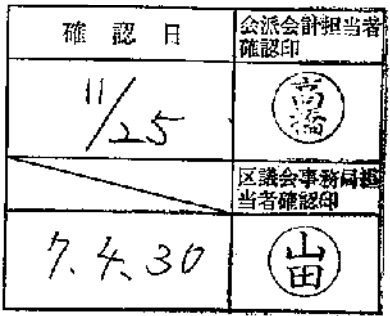 確認日
会派会計担当者
確認印
11/25
高橋
区議会事務局担
当者確認印
7.4.30
山田